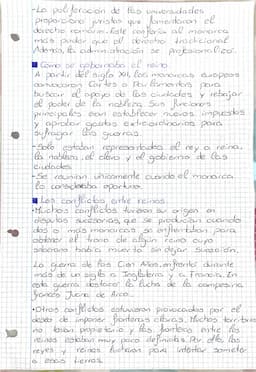 -La proliferación de las universidades
proporciono juristas que fomentaron el
derecho romano. Este confería al monarca
más poder que el derecho tradicional
Además, la administración se profesionalizó.
■ Cómo se gobernaba el reino
A partir del siglo XII, los monarcas europeos
convocaron Cortes o Parlamentos para
buscar el apoyo de las ciudades y rebajar
el poder de la nobleza. Sus funciones
principales eran establecer nuevos impuestos
y aprobar gastos extraordinarios para
sufragar las guerras.
-Solo estaban representados el rey o reina,
la nobleza, el clero y el gobierno de las
ciudades
-Se reunían únicamente cuando el monarca
lo consideraba oportuno.
■ Los conflictos entre reinos.
•Muchos conflictos tuvieron su origen en
disputas sucesorias, que se producían cuando
dos o más monarcas se enfrentaban para
obtener el trono de algún reino cuyo
soberano había muerto sin dejar sucesión.
La guerra de los Cien Años, enfrentó durante
más de un siglo a Inglaterra y a Francia. En
esta guerra destacó la lucha de la campesina
Juana de Arco.
•Otros conflictos estuvieron provocados por el
deseo de imponer fronteras claras. Muchos territorios
no tenían propietario y las fronteras entre los
reinos estaban muy poco definidas. Por ello, los
reyes y reinas luchaban para intentar someter
a esas tierras.